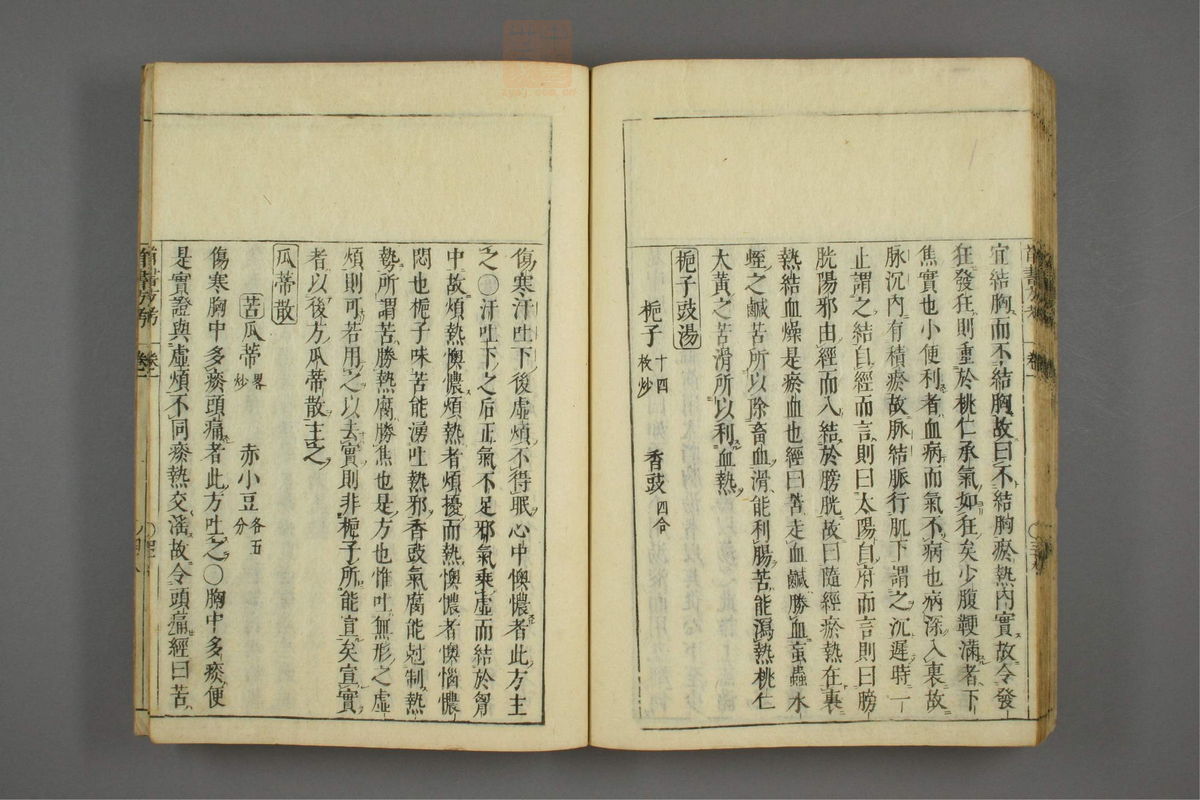 宜結胸而不結胸故曰不結胸瘀熱內實故令發
狂發狂則重於桃仁承氣如狂矣少腹鞕滿者下
焦實也小便利者血病而氣不病也病深入裏故
脉沉內有積瘀故脉結脈行肌下謂之沉遲時一
止謂之結自經而言則曰太陽自府而言則曰膀
胱陽邪由經而入結於膀胱故曰隨經瘀熱在裏
熱結血燥是瘀血也經曰苦走血鹹勝血䖟蟲水
蛭之鹹苦所以除畜血滑能利腸苦能瀉熱桃仁
大黃之苦滑所以利血熱
梔子豉湯
梔子 十四枚炒 香豉 四合
傷寒汗吐下後虛煩不得眠心中懊憹者此方主
之○汗吐下之后正氣不足邪氣乘虛而結於胷
中故煩熱懊憹煩熱者煩擾而熱懊憹者懊惱憹
悶也梔子味苦能湧吐熱邪香豉氣腐能尅制熱
勢所謂苦勝熱腐勝焦也是方也惟吐無形之虛
煩則可若用之以去實則非梔子所能宣矣宣實
者以後方瓜蒂散主之
瓜蒂散
苦瓜蒂 畧炒 赤小豆 各五分
傷寒胸中多痰頭痛者此方吐之○胸中多痰便
是實證與虛煩不同痰熱交滛故令頭痛經曰苦